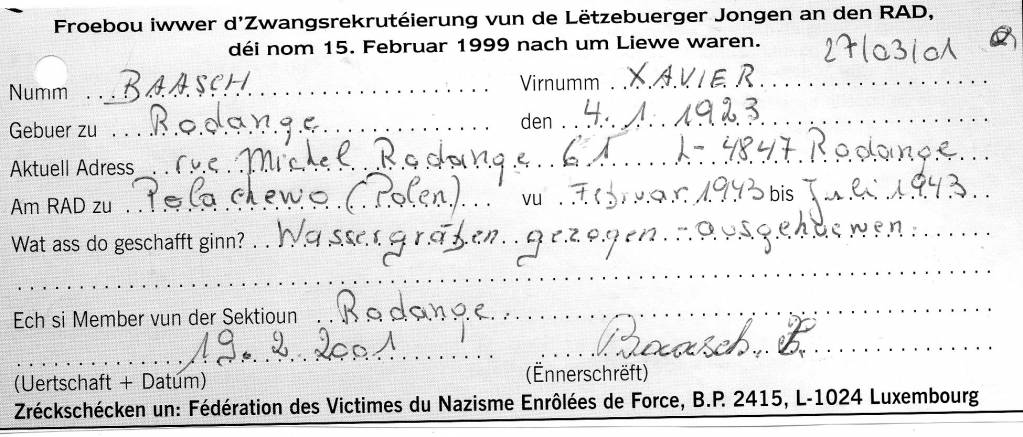 Froebou iwwer d'Zwangsrekrutéierung vun de Lëtzebuerger Jongen an den RAD,
déi nom 15. Februar 1999 nach um Liewe waren.
27/03/01
Numm BAASCH Virnumm XAVIER
Gebuer zu Rodange den 4. 1. 1923
Aktuell Adress rue Michel Rodange 61 L-4847 Rodange
Am RAD zu Polachewo (Polen) vu Februar 1943 bis Juli 1943
Wat ass do geschafft ginn? Wassergräben gezogen - ausgehuewen.
Ech si Member vun der Sektioun Rodange
19. 2. 2001 Baasch. X.
(Uertschaft + Datum) (Ënnerschrëft)
Zréckschécken un: Fédération des Victimes du Nazisme Enrôlées de Force, B.P. 2415, L-1024 Luxembourg